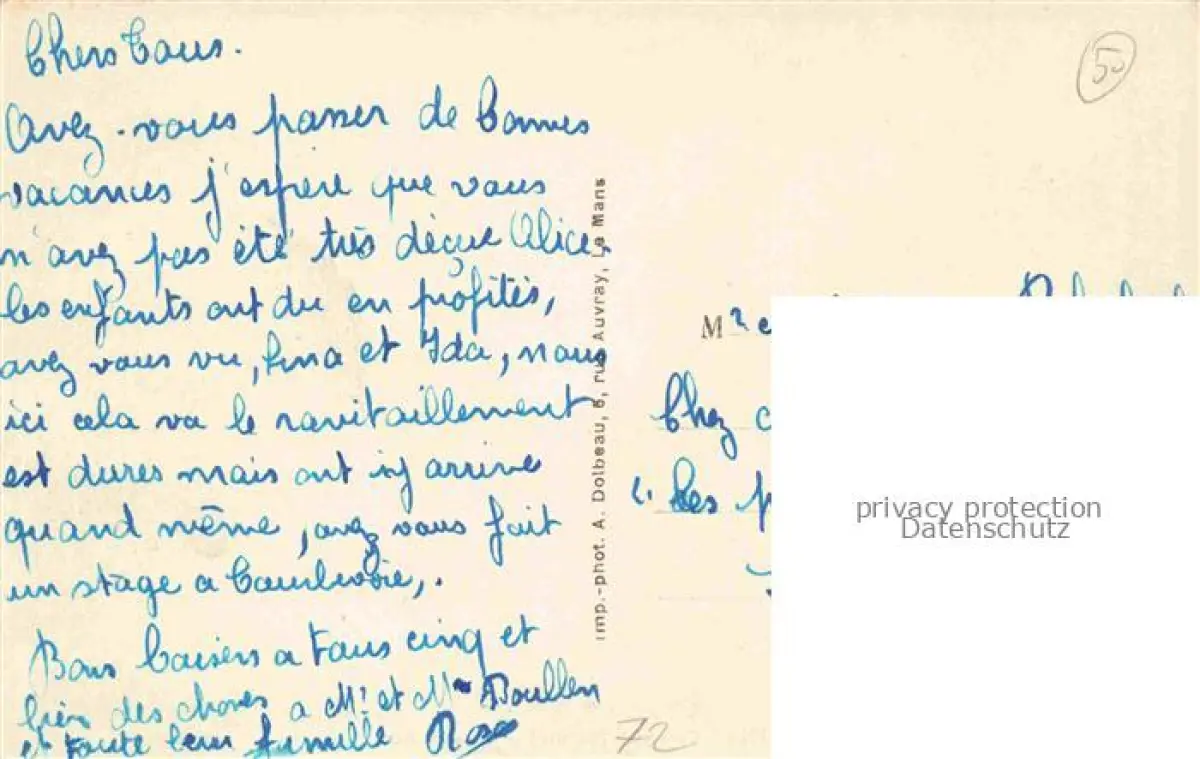 Chers Tous.
Avez-vous passer de bonnes
vacances j'espère que vous
n'avez pas été très déçue Alice,
les enfants ont du en profités,
avez vous vu, Lina et Ida, nous
ici cela va le ravitaillement
est dures mais ont iy arrive
quand même, avez vous fait
un stage a Courbevoie,.
Bons baisers a tous cinq et
bien des choses a Mr et Mme
et toute leur famille Rose
Imp.-phot. A. Dolbeau, 5, rue Auvray, Le Mans
50
M
Chez
"Les
72
privacy protection
Datenschutz